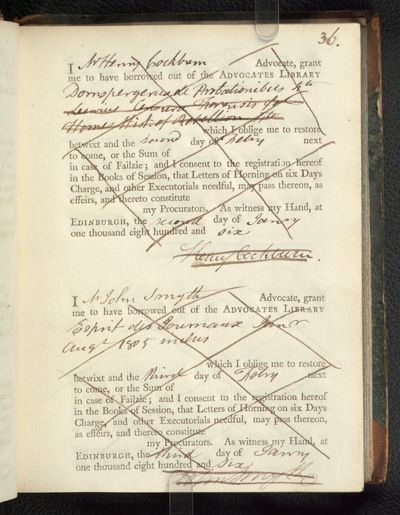 36.
I Mr Henry Cockburn Advocate, grant
me to have borrowed out of the ADVOCATES LIBRARY
de Probationibus 4to
Home's Hist. of Rebellion 4to
which I oblige me to restore
betwixt and the second day of Febry next
to come, or the Sum of
in case of Failzie; and I consent to the registration hereof
in the Books of Session, that Letters of Horning on six Days
Charge, and other Executorials needful, may pass thereon, as
effeirs, and thereto constitute
my Procurators. As witness my Hand, at
EDINBURGH, the second day of Janry
one thousand eight hundred and six
Henry Cockburn.
I Mr John Smyth Advocate, grant
me to have borrowed out of the ADVOCATES LIBRARY
Esprit des Journaux
Augt 1805 inclus
which I oblige me to restore
betwixt and the third day of Febry next
to come, or the Sum of
in case of Failzie; and I consent to the registration hereof
in the Books of Session, that Letters of Horning on six Days
Charge, and other Executorials needful, may pass thereon,
as effeirs, and thereto constitute
my Procurators. As witness my Hand, at
EDINBURGH, the third day of Janry
one thousand eight hundred and six